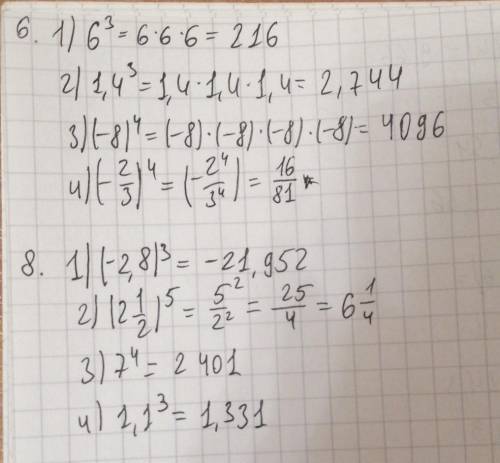 6. 1) 6³ = 6·6·6 = 216
2) 1,4³ = 1,4·1,4·1,4 = 2,744
3) (-8)⁴ = (-8)·(-8)·(-8)·(-8) = 4096
4) (-2/3)⁴ = (-2⁴/3⁴) = 16/81
8. 1) (-2,8)³ = -21,952
2) (2 1/2)⁵ = 5²/2² = 25/4 = 6 1/4
3) 7⁴ = 2 401
4) 1,1³ = 1,331